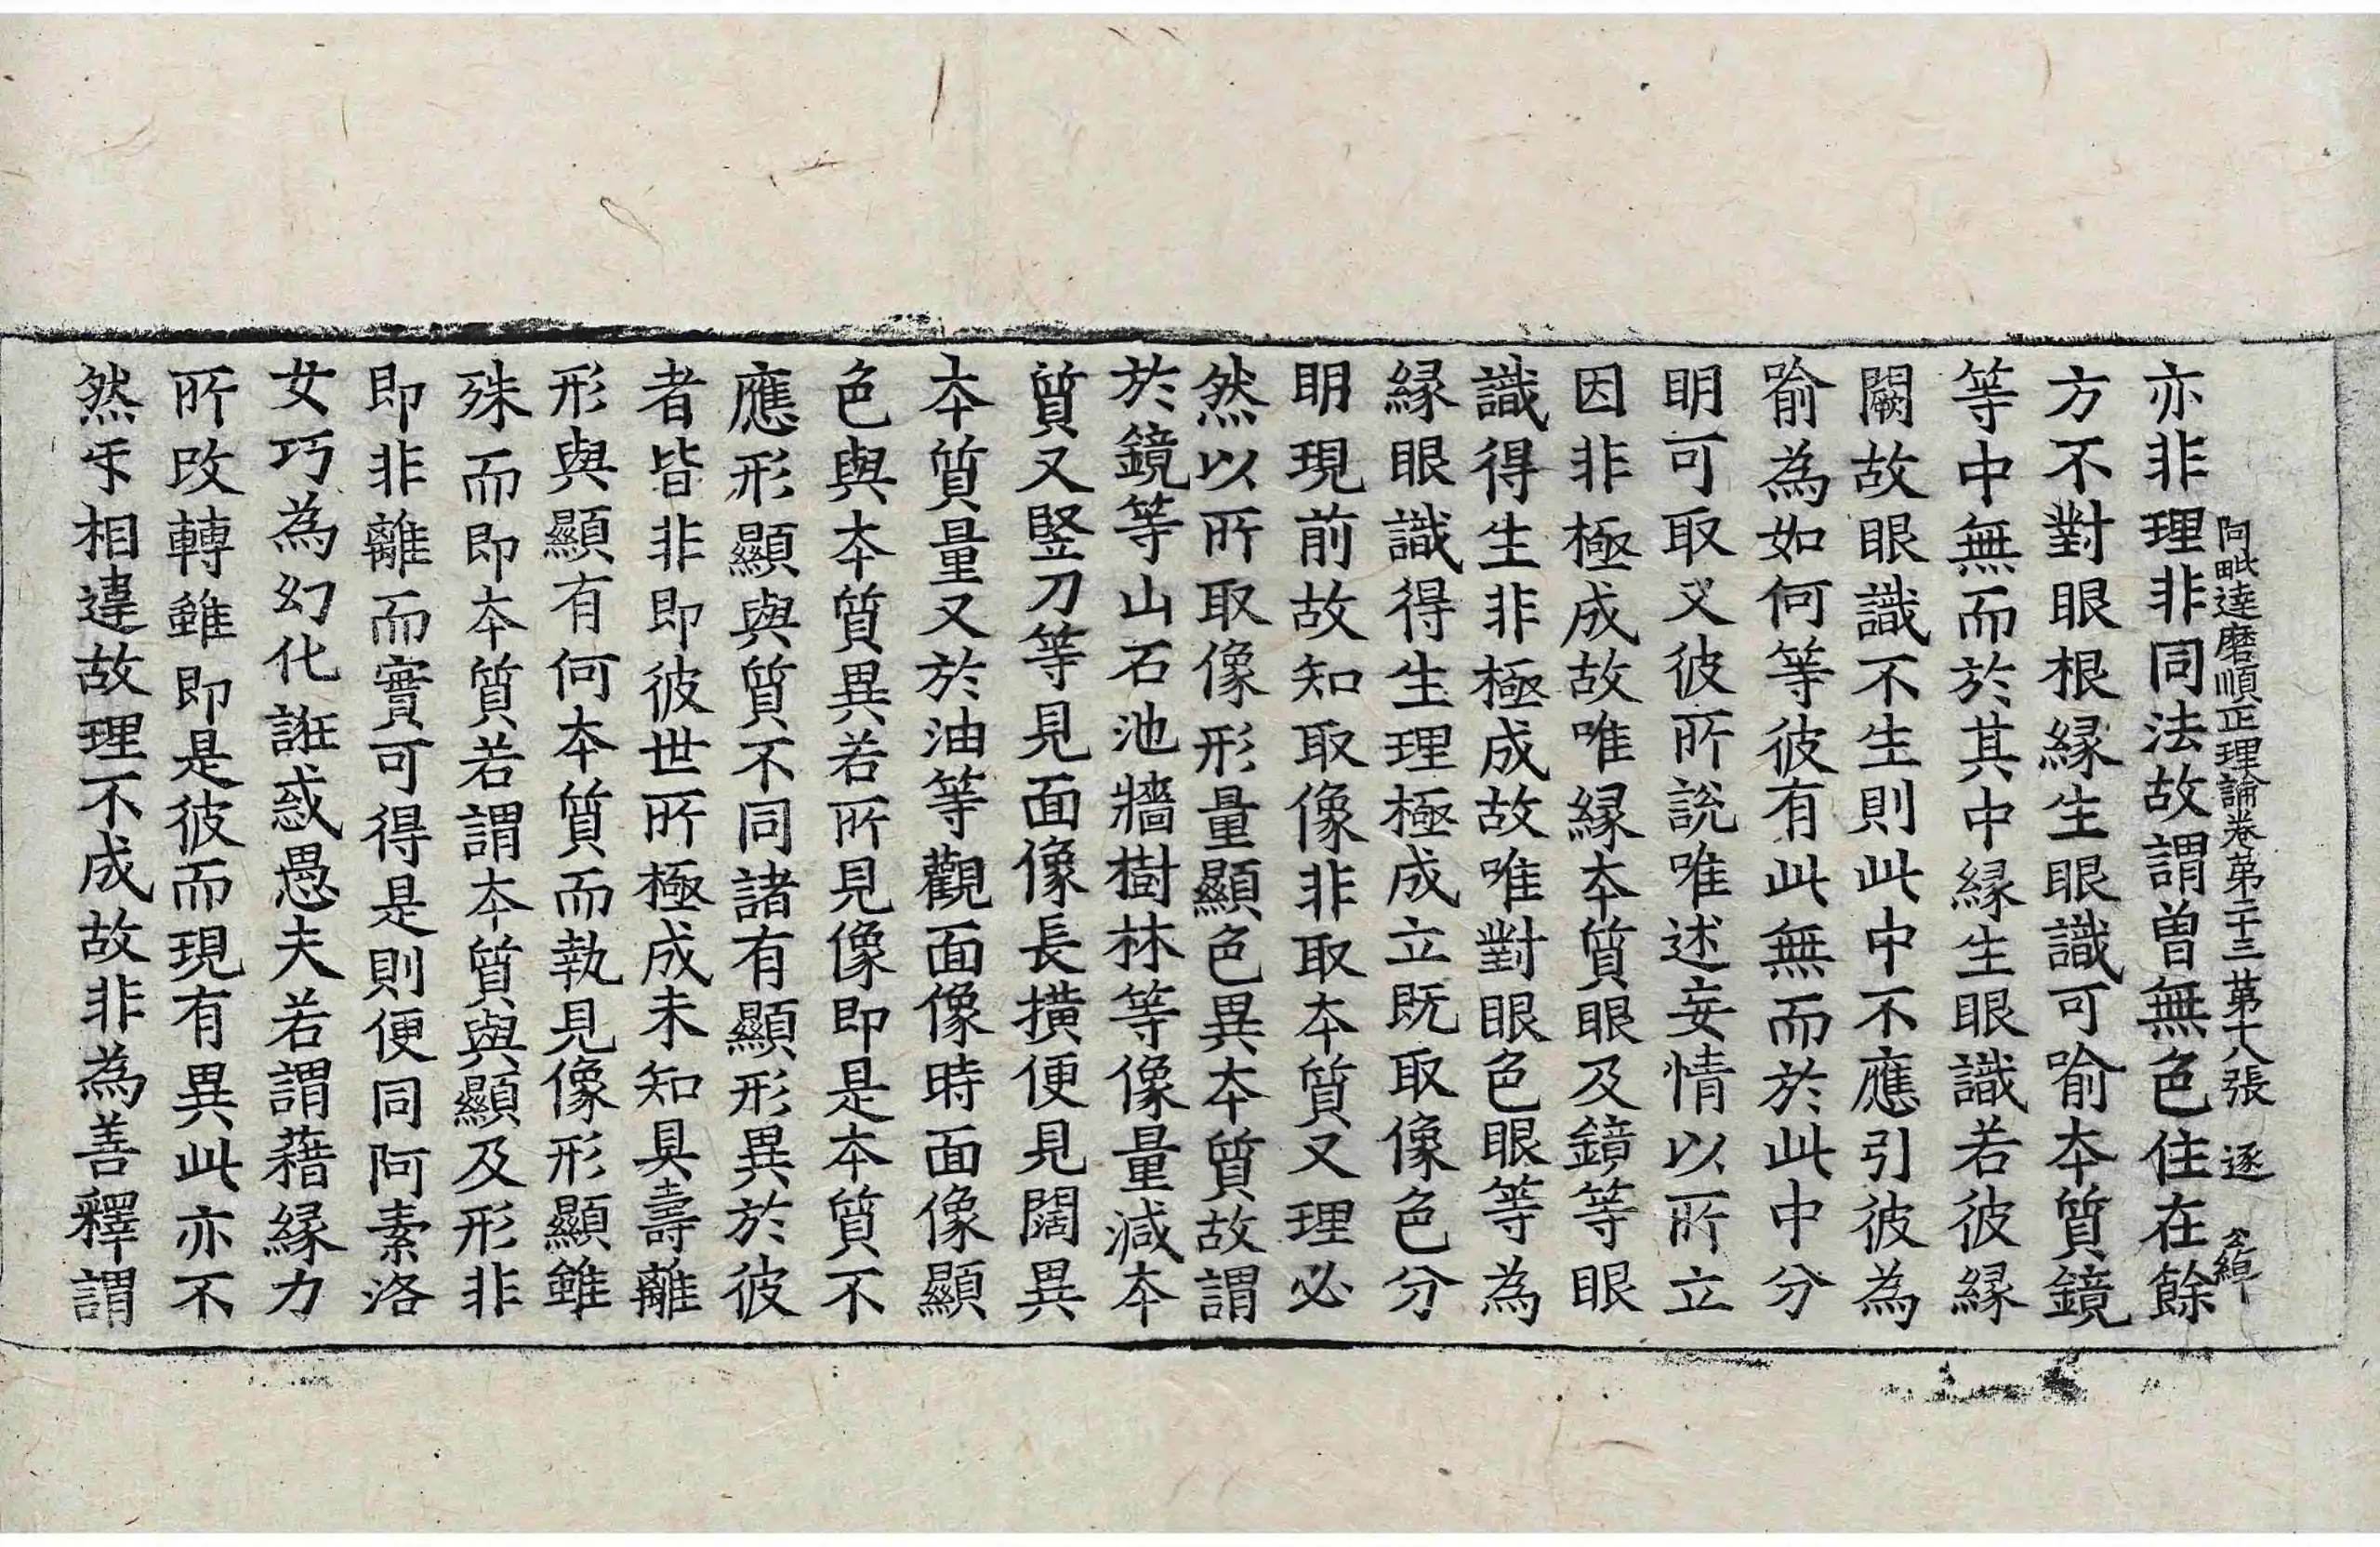 亦非理非同法故謂曽無色住在餘
阿毗達磨順正理論卷第二十三 第十八張 逐
方不對眼根縁生眼識可喻夲質鏡
等中無而於其中縁生眼識若彼縁
闕故眼識不生則此中不應引彼為
喻為如何等彼有此無而於此中分
明可取又彼所說唯述妄情以所立
因非極成故唯縁夲質眼及鏡等眼
識得生非極成故唯對眼色眼等為
縁眼識得生理極成立既取像色分
明現前故知取像非取夲質又理必
然以所取像形量顯色異夲質故謂
於鏡等山石池牆樹林等像量減夲
質又竪刀等見面像長撗便見闊異
夲質量又於油等觀面像時面像顯
色與夲質異若所見像即是夲質不
應形顯與質不同諸有顯形異於彼
者皆非即彼世所極成未知具壽離
形與顯有何夲質而執見像形顯雖
殊而即夲質若謂夲質與顯及形非
即非離而實可得是則便同阿素洛
女巧為幻化誑惑愚夫若謂藉縁力
所改轉雖即是彼而現有異此亦不
然㸦相違故理不成故非為善釋謂